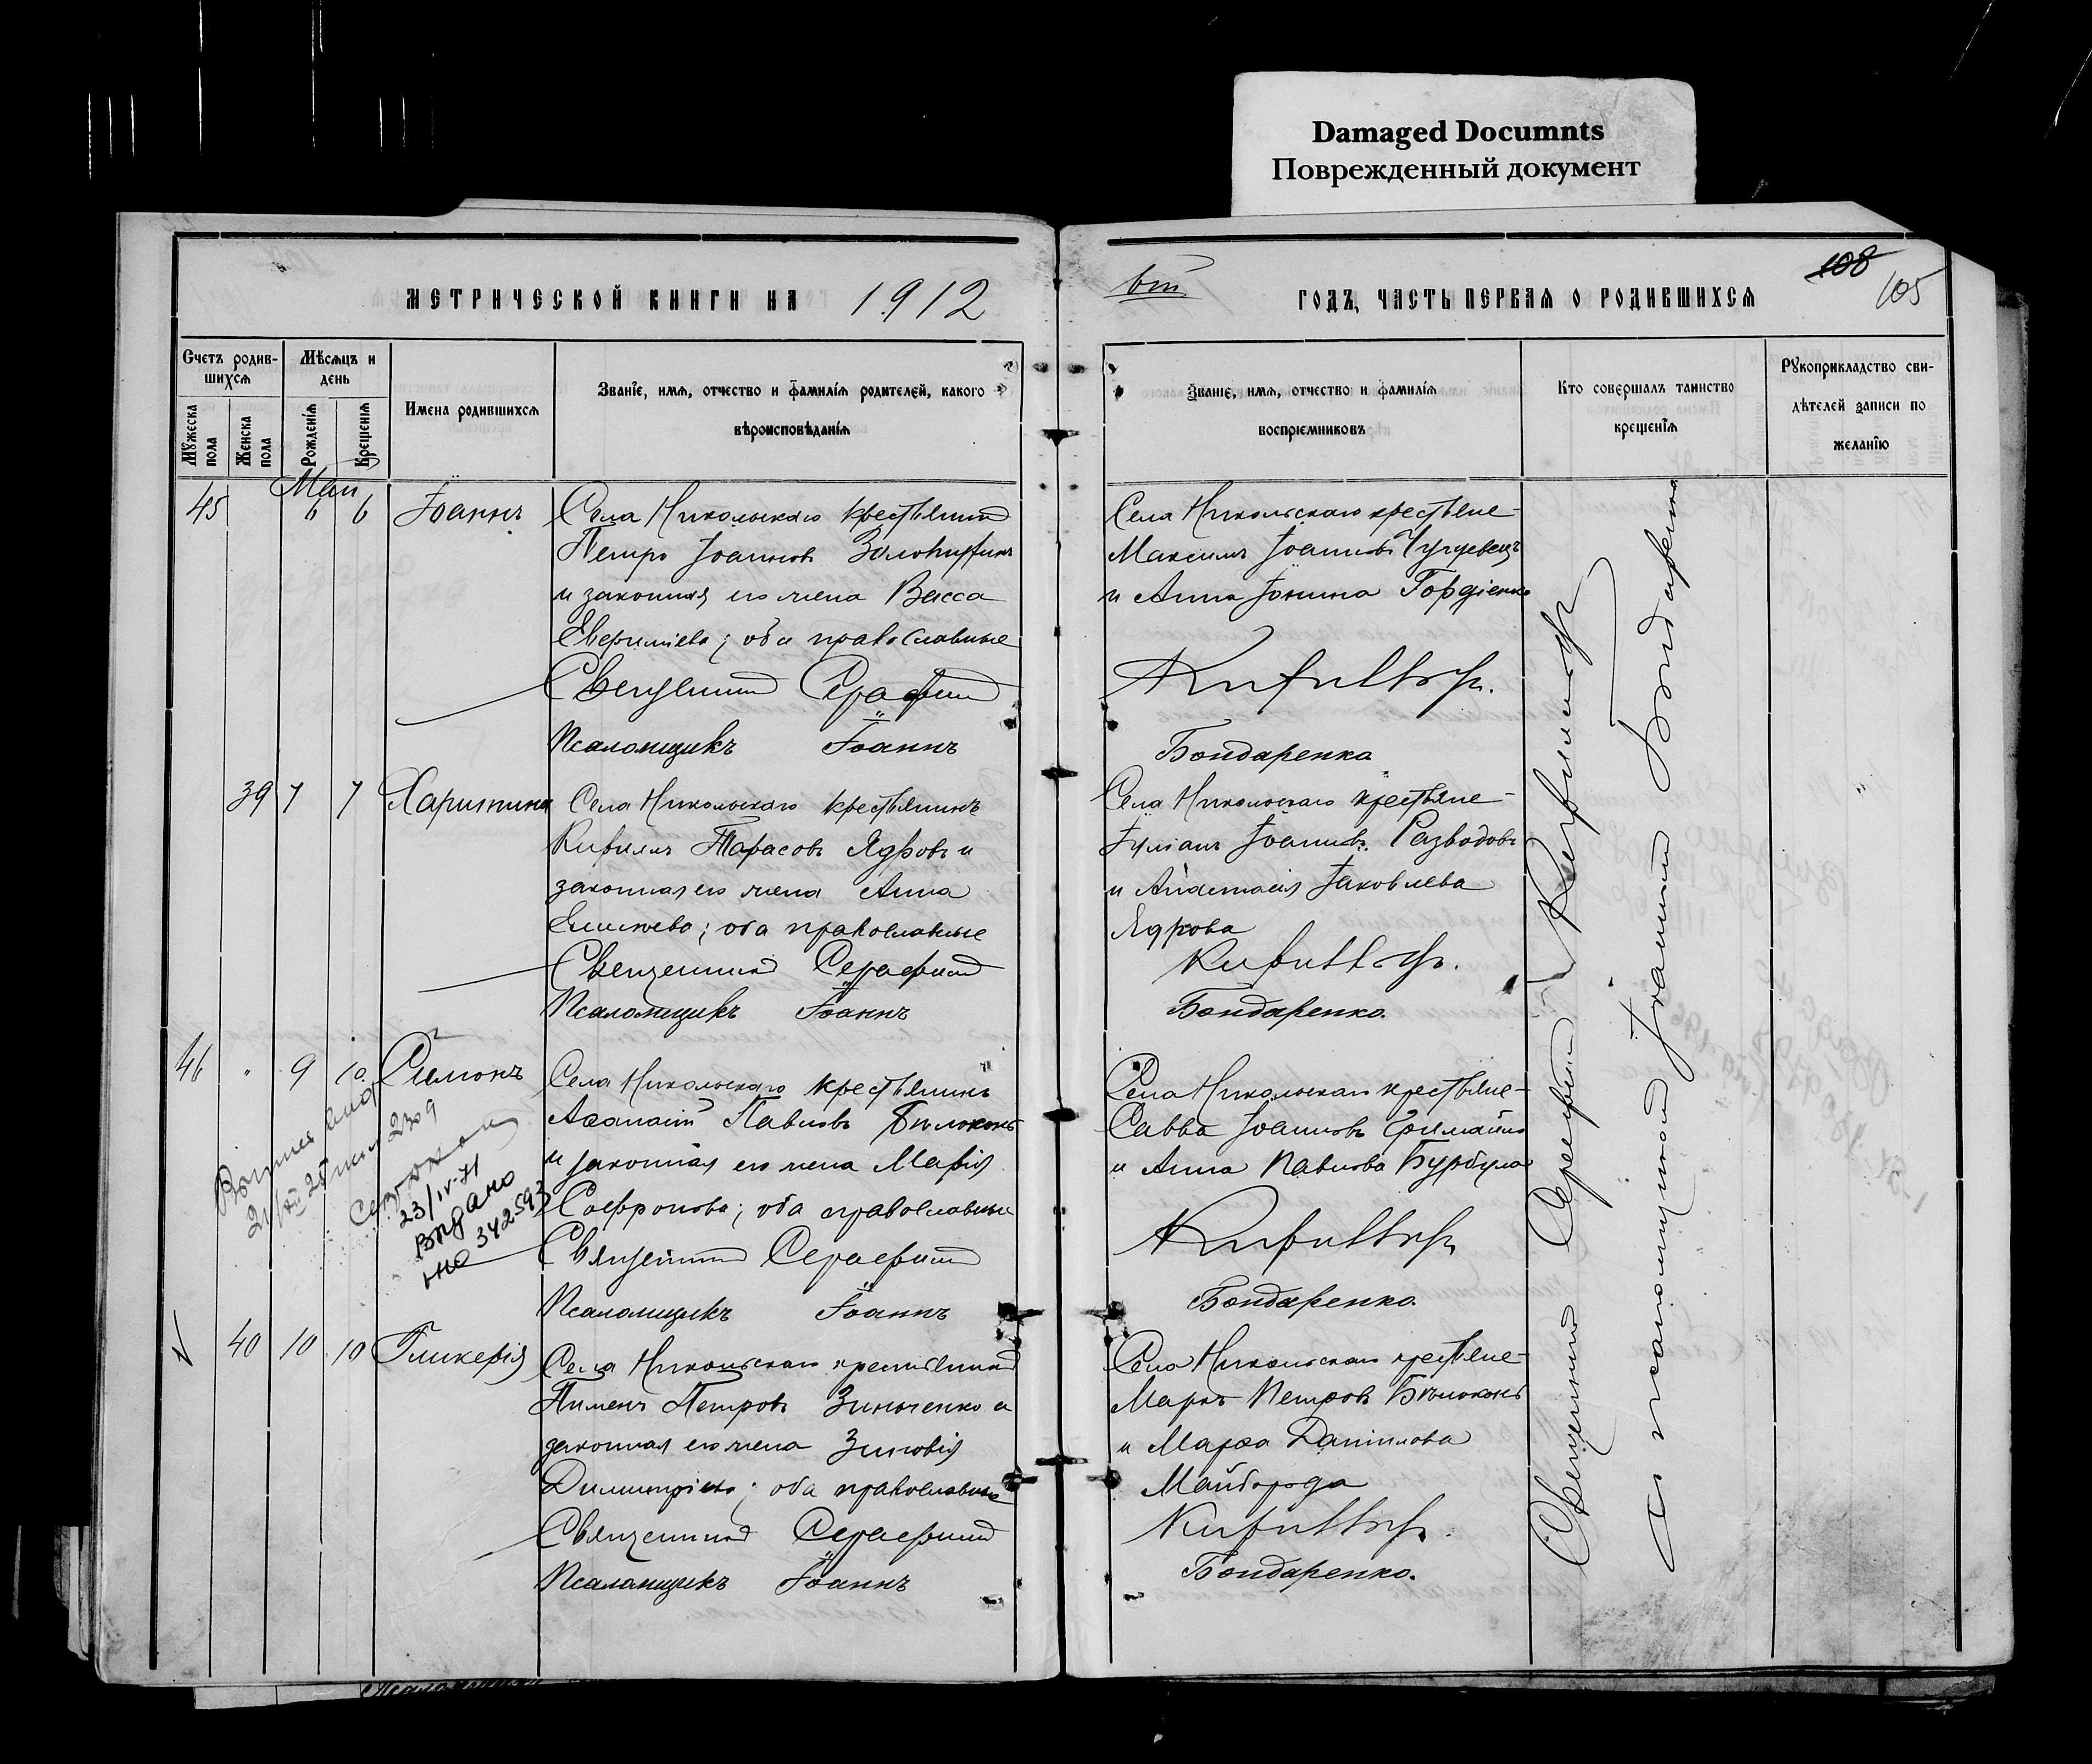 Damaged Documnts
Поврежденный документ
МЕТРИЧЕСКОЙ КНИГИ НА 1912
Счетъ родив-
шихся
Мѣсяцъ и
день
Мужеска
пола
Женска
пола
Рожденія
Крещенія
Имена родившихся
Званіе, имя, отчество и фамилія родителей, какого
вѣроисповѣданія
Маи
45 6 6 Іоаннъ
Села Никольскаго крестьянинъ
Петръ Іоанновъ
и законная его жена Васса
оба православные
Священникъ Серафимъ
Псаломщикъ Іоаннъ
39 7 7 Харитина
Села Никольскаго крестьянинъ
Кириллъ Тарасовъ Ядровъ и
законная его жена Анна
оба православные
Священникъ Серафимъ
Псаломщикъ Іоаннъ
46 " 9 10 Симонъ
Села Никольскаго крестьянинъ
Аѳанасій Павловъ Бѣлоконь
и законная его жена Марія
Софронова; оба православные
Священникъ Серафимъ
Псаломщикъ Іоаннъ
2309
23/IV-71
Выдано
342593
40 10 10 Гликерія
Села Никольскаго крестьянинъ
Пименъ Петровъ Зинченко и
законная его жена Зиновія
Димитріева; оба православные
Священникъ Серафимъ
Псаломщикъ Іоаннъ
108
105
ГОДЪ, ЧАСТЬ ПЕРВАЯ О РОДИВШИХСЯ
Званіе, имя, отчество и фамилія
воспріемниковъ
Кто совершалъ таинство
крещенія
Рукоприкладство сви-
дѣтелей записи по
желанію
Села Никольскаго крестьяне-
Максимъ Іоанновъ Чугуевецъ
и Анна Іонина Гордіенко
Бондаренко
Села Никольскаго крестьяне-
Іуліанъ Іоанновъ Разводовъ
и Анастасія Іаковлева
Ядрова
Бондаренко.
Села Никольскаго крестьяне-
Савва Іоанновъ
и Анна Павлова
Бондаренко.
Села Никольскаго крестьяне-
Маркъ Петровъ Бѣлоконь
и Марѳа Даніилова
Майборода
Бондаренко.
Священникъ Серафимъ
псаломщикомъ Іоанномъ Бондаренко